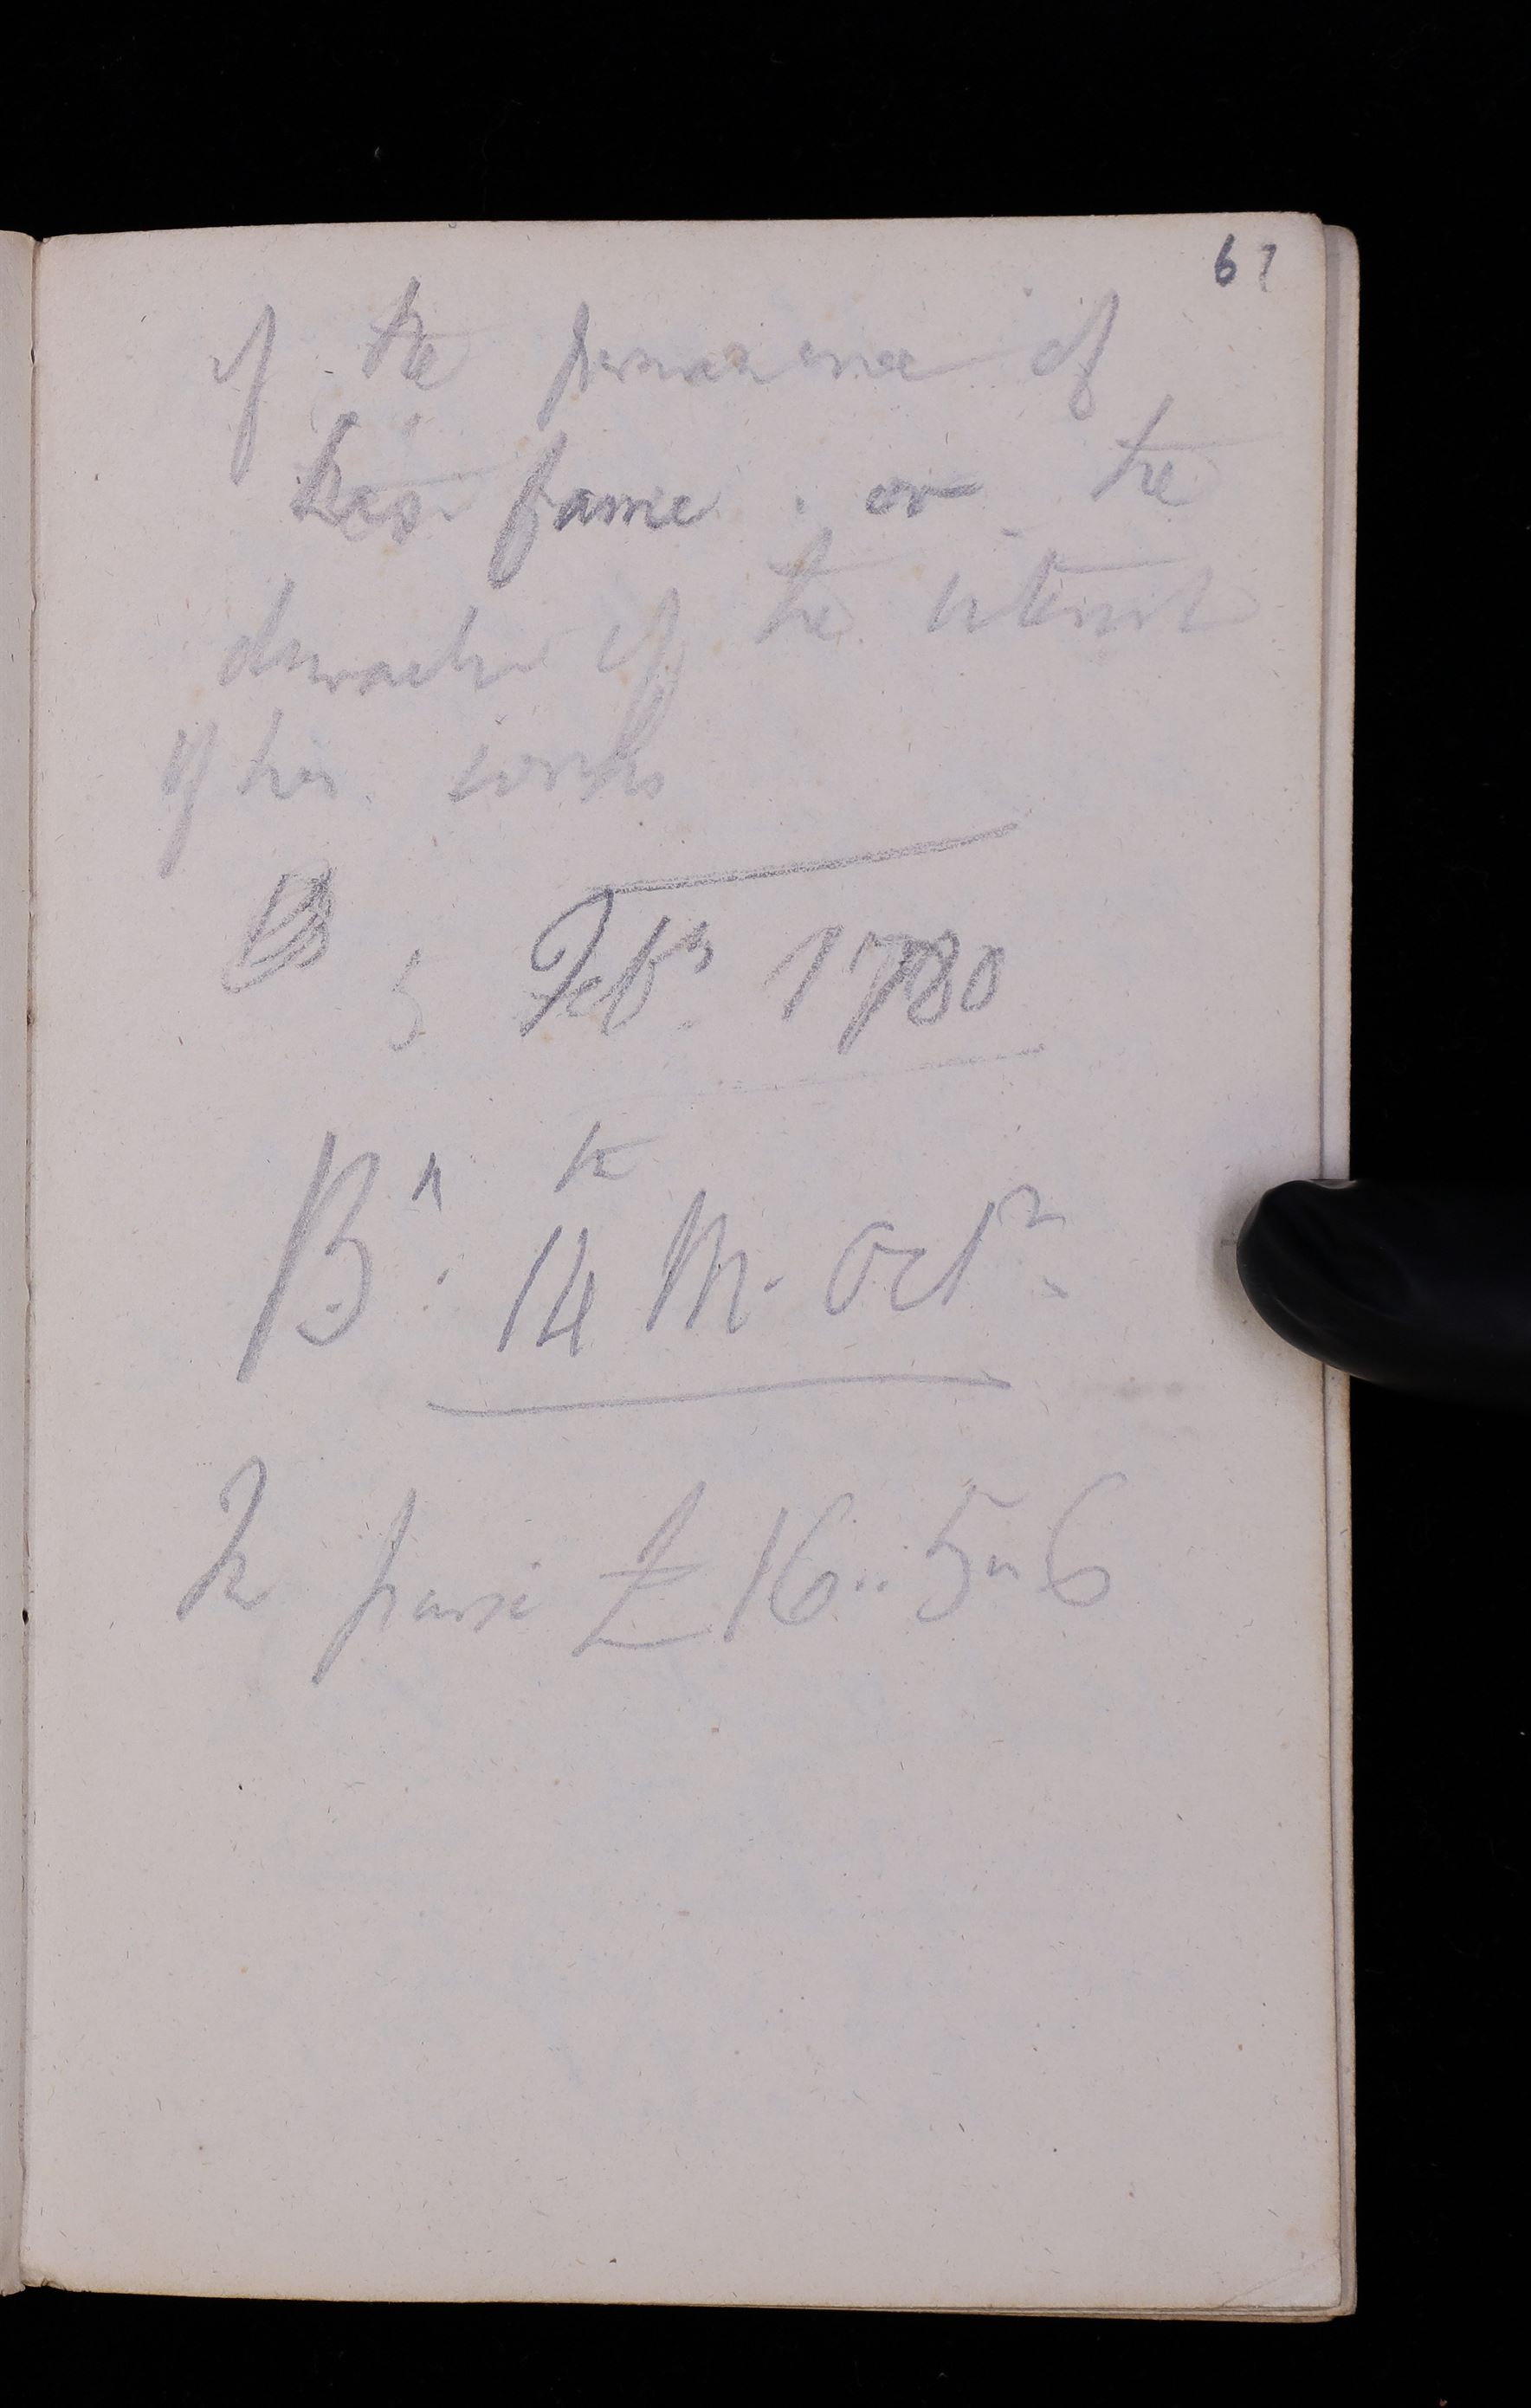 61
of the permanence of
his fame . or the
duration of the interest
of his works
5 Feby. 1780
Bn. the
14 M. Octr.
In purse £ 16..5..6